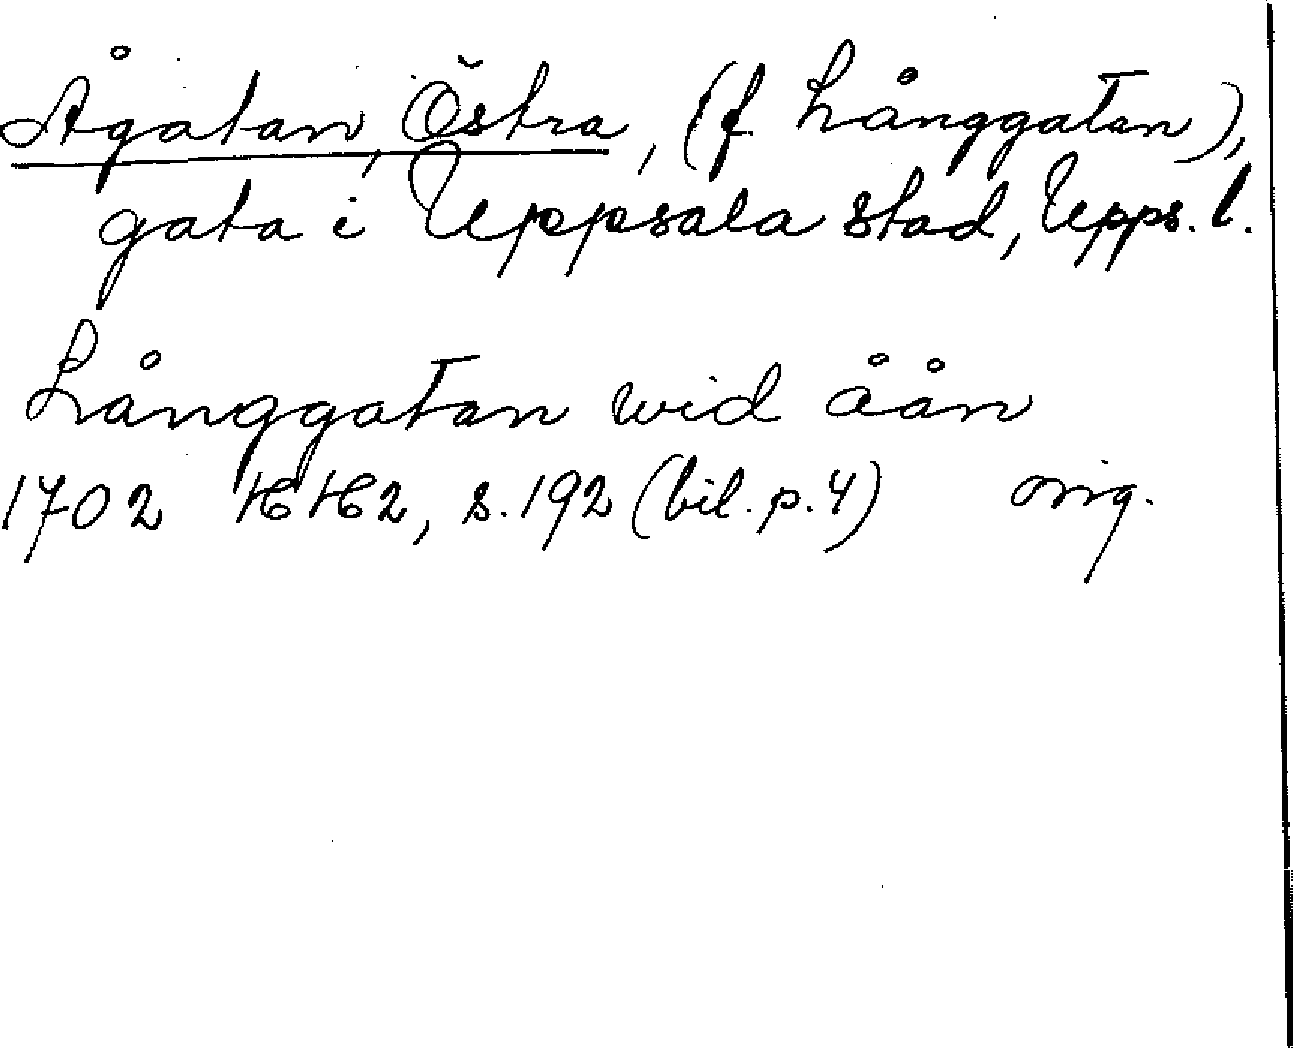 Ågatan, Östra, (f. Långgatan),
gata i Uppsala stad, Upps. l.
Långgatan wid åån
1702 KK2, s. 192 (bil. p. 4) orig.